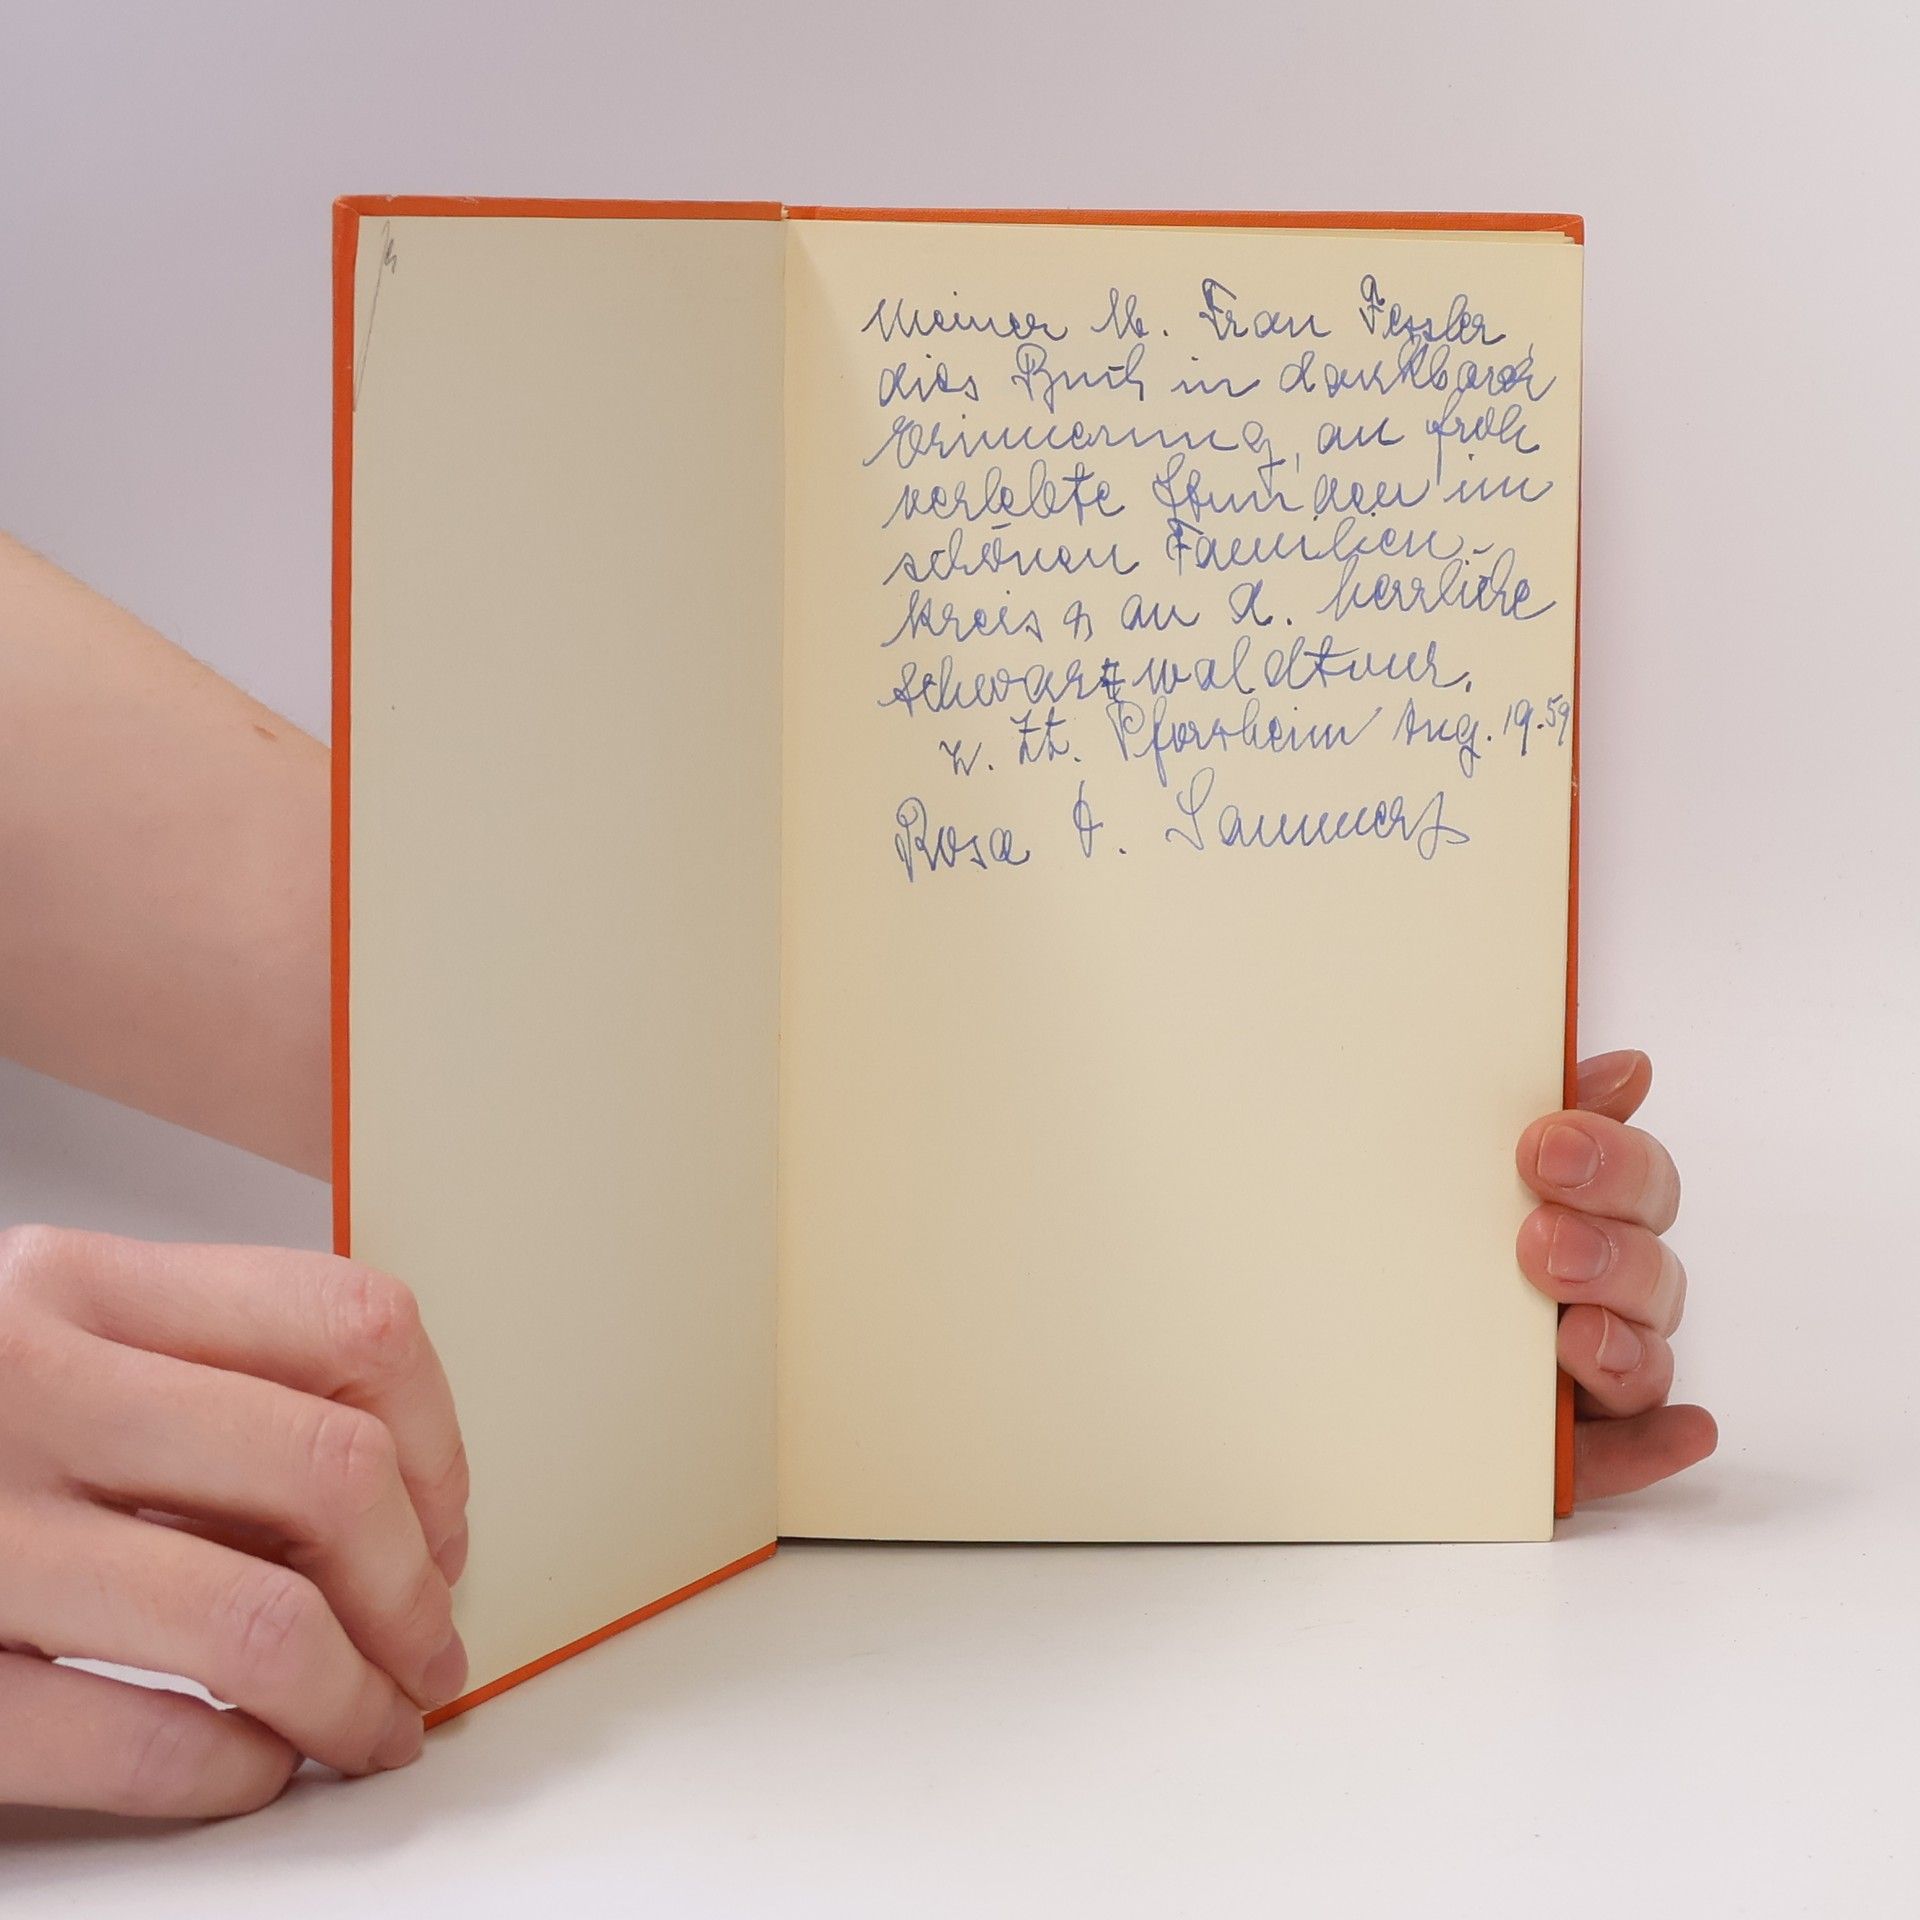 Meiner lb. Frau Fessler,
dies Buch in dankbarer
Erinnerung, an froh
verlebte Stunden im
schönen Familien-
kreis & an d. herrliche
Schwarzwaldtour.
z. Zt. Pforzheim Aug. 19.59
Rosa A.